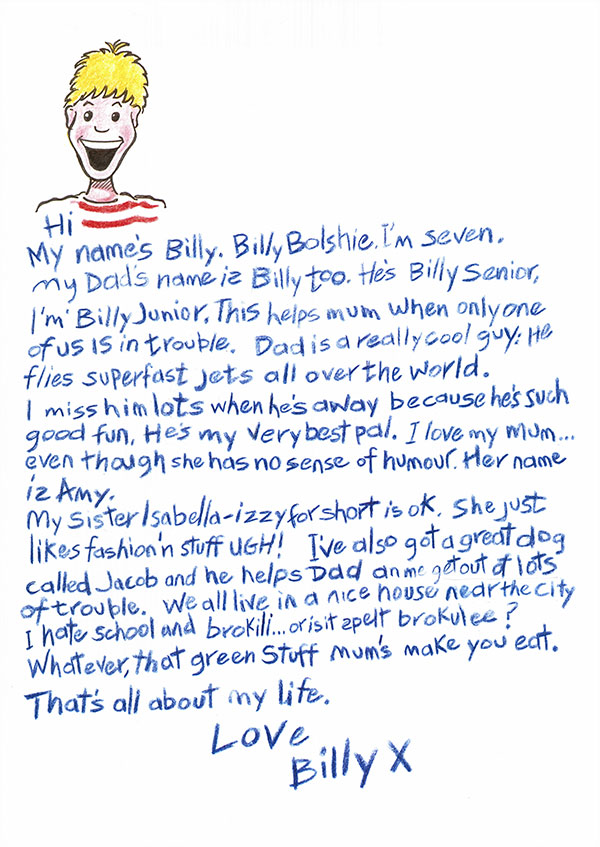 Hi
My name's Billy. Billy Bolshie. I'm seven.
my Dad's name iz Billy too. He's Billy Senior,
I'm Billy Junior. This helps mum when only one
of us is in trouble. Dad is a really cool guy: He
flies superfast jets all over the world.
I miss him lots when he's away because he's such
good fun. He's my very best pal. I love my mum...
even though she has no sense of humour. Her name
iz Amy.
My sister Isabella-izzy for short is ok. She just
likes fashion'n stuff UGH! I've also got a great dog
called Jacob and he helps Dad an me get out of lots
of trouble. We all live in a nice house near the city
I hate school and brokili... or is it zpelt brokulee?
Whatever, that green stuff mum's make you eat.
That's all about my life.
Love
Billy X